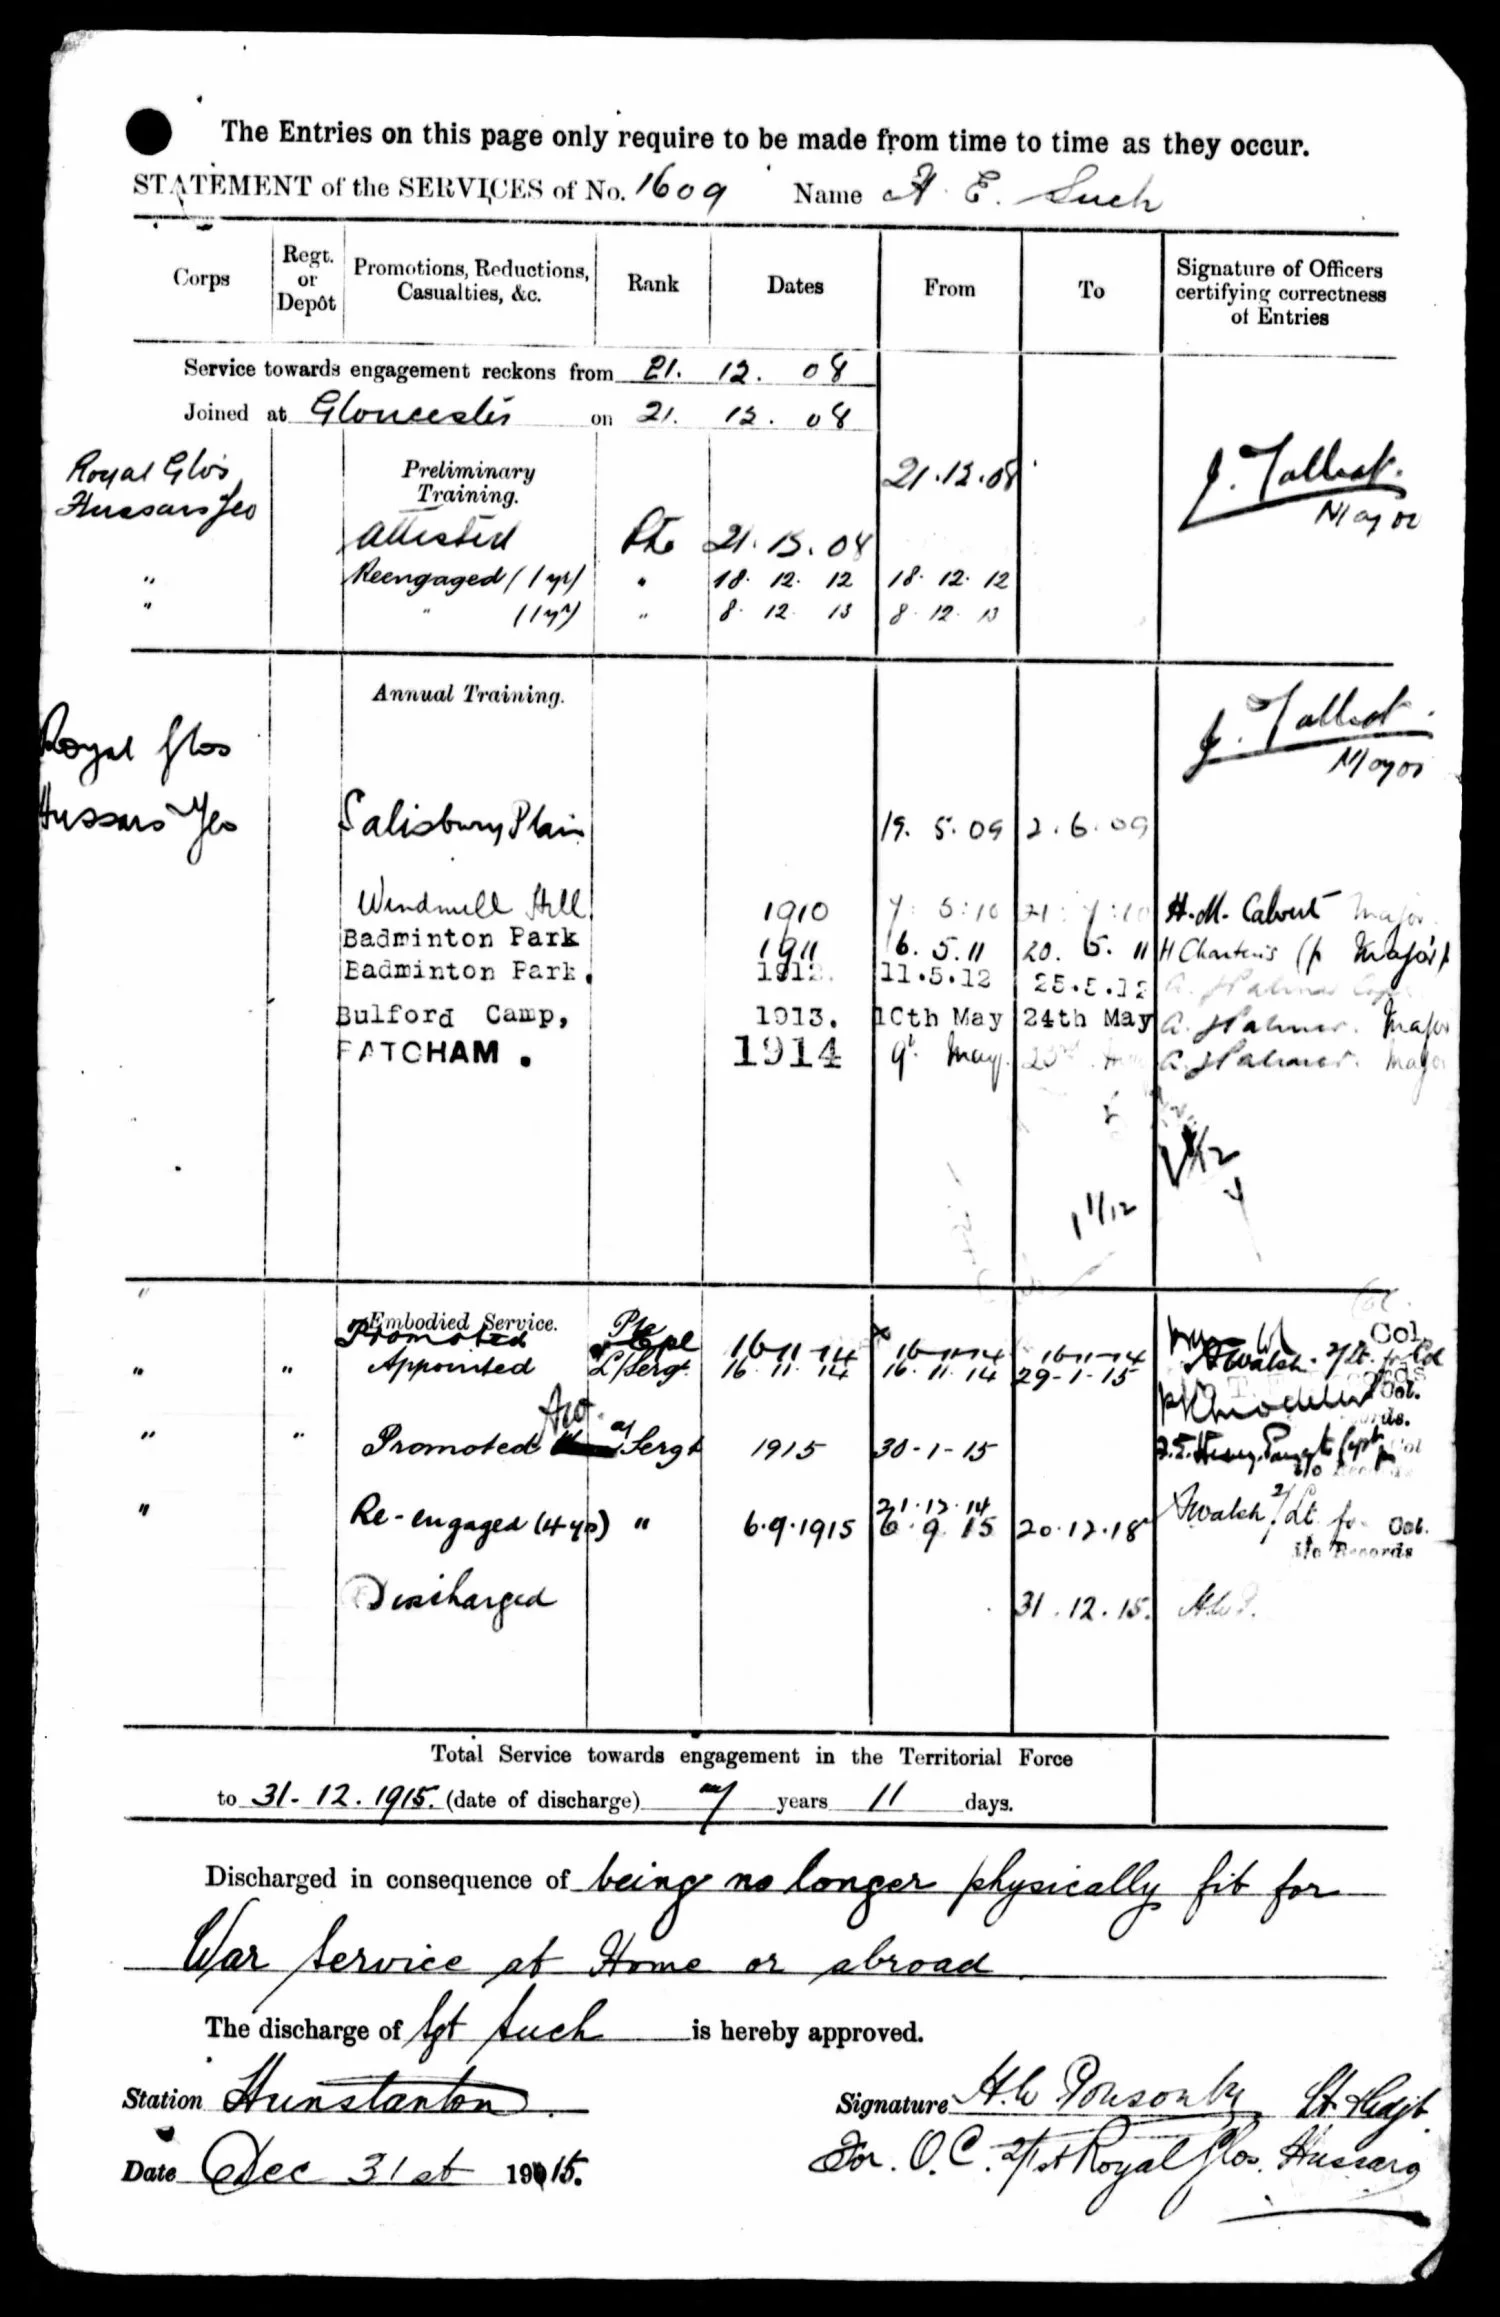 The Entries on this page only require to be made from time to time as they occur.
STATEMENT of the SERVICES of No. 1609 Name H. E. Such
Corps
Regt. or Depôt
Promotions, Reductions, Casualties, &c.
Rank
Dates
From
To
Signature of Officers certifying correctness of Entries
Service towards engagement reckons from 21. 12. 08
Joined at Gloucester on 21. 12. 08
Royal Glos Preliminary 21.12.08 J. Talbot.
Hussars Yeo Training. Major
Attested Pte 21.12.08
" Reengaged (1 yr) " 18. 12. 12 18. 12. 12
" " (1 yr) " 8. 12. 13 8. 12. 13
Annual Training. J. Talbot.
Royal Glos Major
Hussars Yeo Salisbury Plain 19. 5. 09 2. 6. 09
Windmill Hill 1910 5:10 21: :10 H. M. Calvert Major
Badminton Park 1911 6. 5. 11 20. 5. 11 H Charteris Major
Badminton Park. 1912. 11.5.12 25.5.12 A. Palmer
Bulford Camp, 1913. 10th May 24th May A. Palmer. Major
PATCHAM. 1914 9th May. 23rd A. Palmer. Major
1/12
1 11/12
"
Embodied Service. Pte
Promoted Cpl 16-11-14 16-11-14 16-11-14 Col.
" " Appointed L/Sergt. 16. 11. 14 16. 11. 14 29-1-15 A Walsh. 2/Lt. for Col
Col.
" " Promoted a/Sergt 1915 30-1-15
21.12.14
" Re-engaged (4 yrs) " 6.9.1915 6. 9. 15 20.12.18 A Walsh 2/Lt. for Col.
i/c Records
Discharged 31.12.15. H.W.P.
Total Service towards engagement in the Territorial Force
to 31-12.1915. (date of discharge) 7 years 11 days.
Discharged in consequence of being no longer physically fit for
War Service at Home or abroad.
The discharge of Sgt Such is hereby approved.
Station Hunstanton. Signature H.W Ponsonby Lt &Adjt.
For. O.C. 2/1st Royal Glos. Hussars
Date Dec 31st 1915.